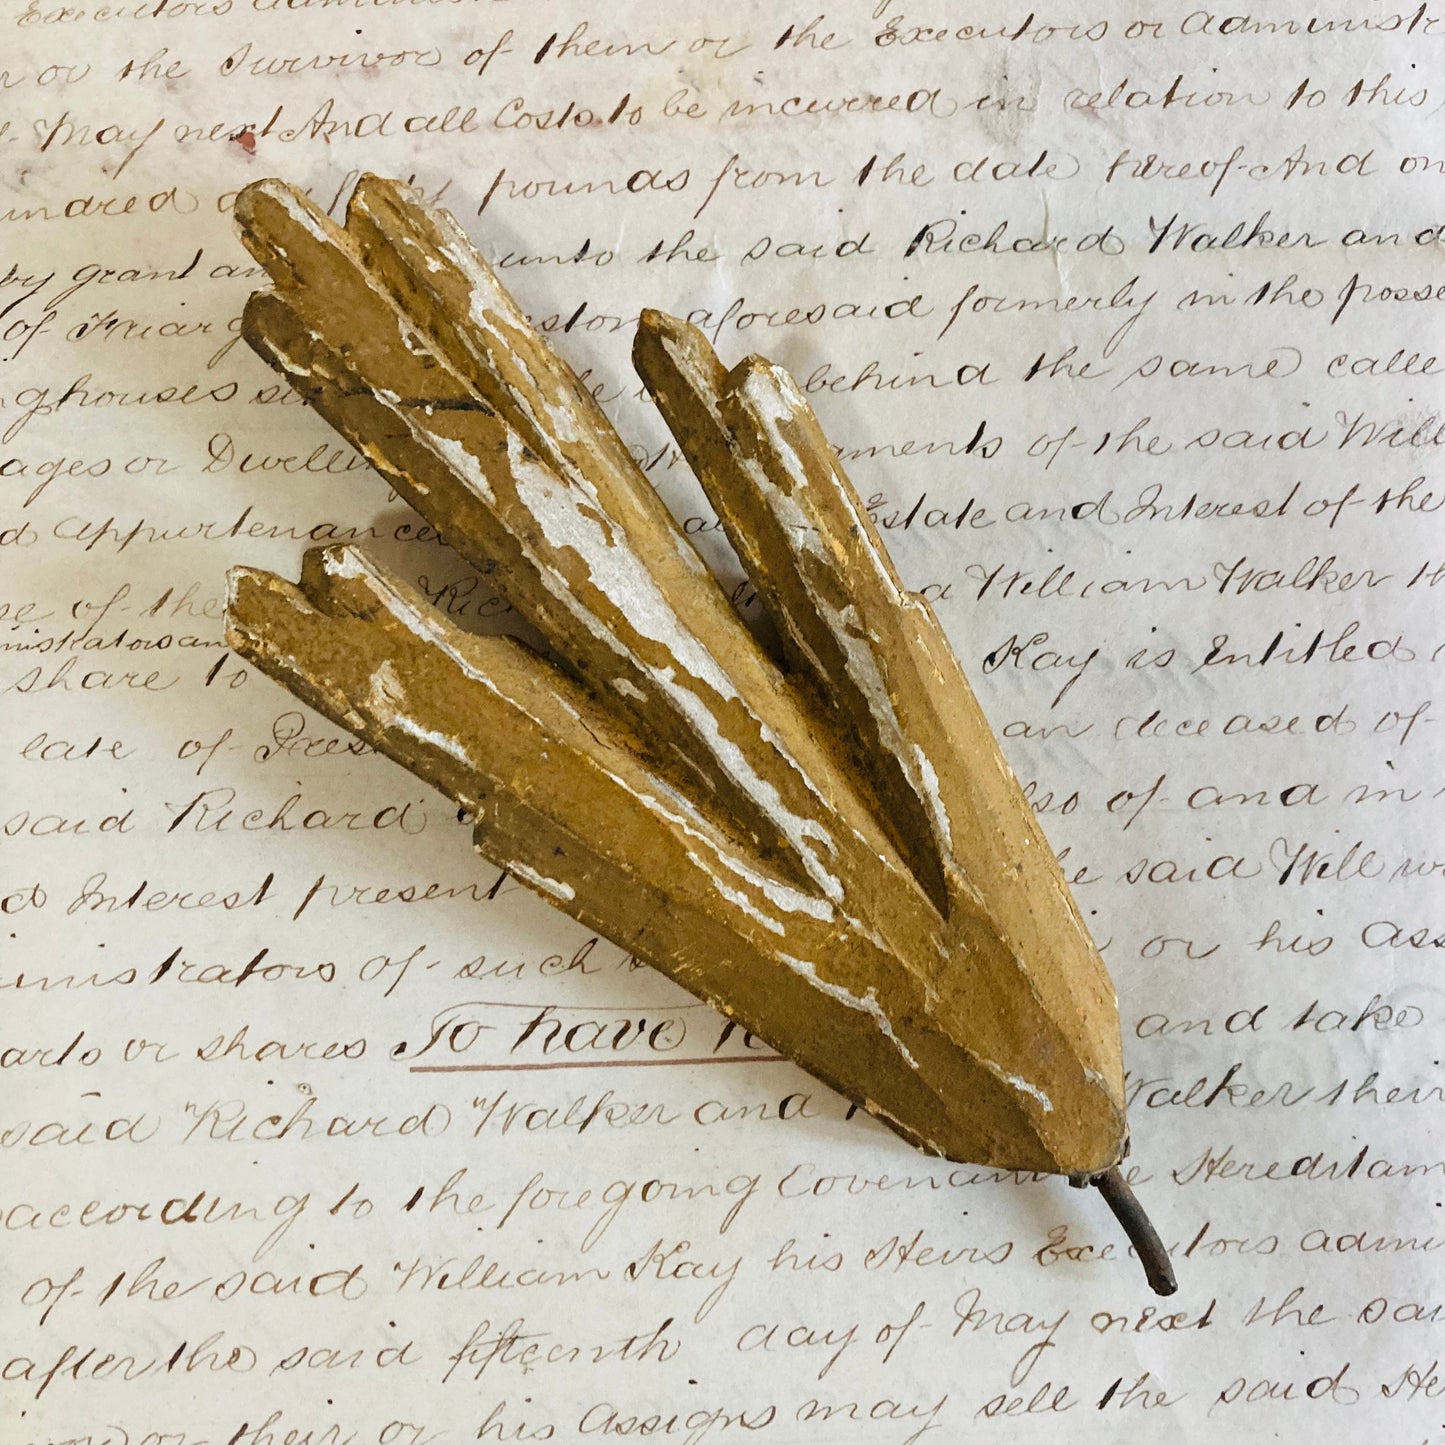 Executors
or the Survivor of them or the Executors or administr
May next And all Costs to be incurred in relation to this
undred pounds from the date hereof And on
by grant an unto the said Richard Walker and
of Friarg eston aforesaid formerly in the posse
ghouses behind the same calle
ages or Dwellin aments of the said Will
d appurtenances Estate and Interest of the
se of the Ric William Walker th
ministrators an
share to Kay is Entitled
late of Pres an deceased of
said Richard lso of and in
d Interest present he said Will
inistrators of such or his Ass
arts or shares To have and take
said Richard Walker and Walker their
according to the foregoing Covenan e Hereditam
of the said William Kay his Heirs Executors admi
after the said fifteenth day of May next the sai
or their or his Assigns may sell the said He